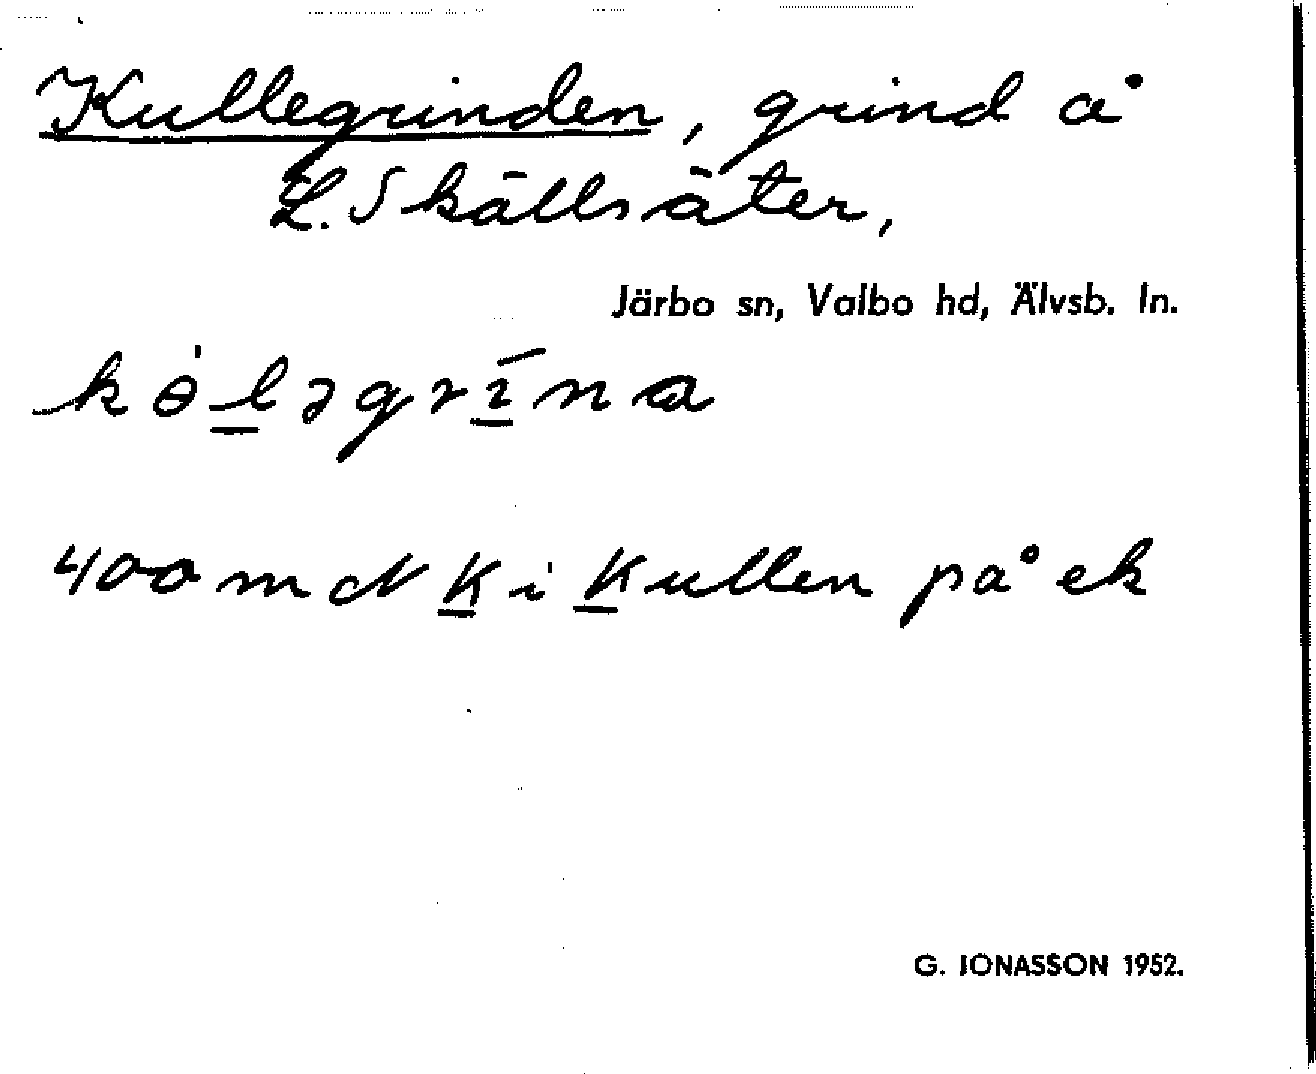 Kullegrinden, grind å
L. Skällsäter,
Järbo sn, Valbo hd, Älvsb. ln.
kө̇ləgrīna
400 m N K i Kullen på ek
G. JONASSON 1952.